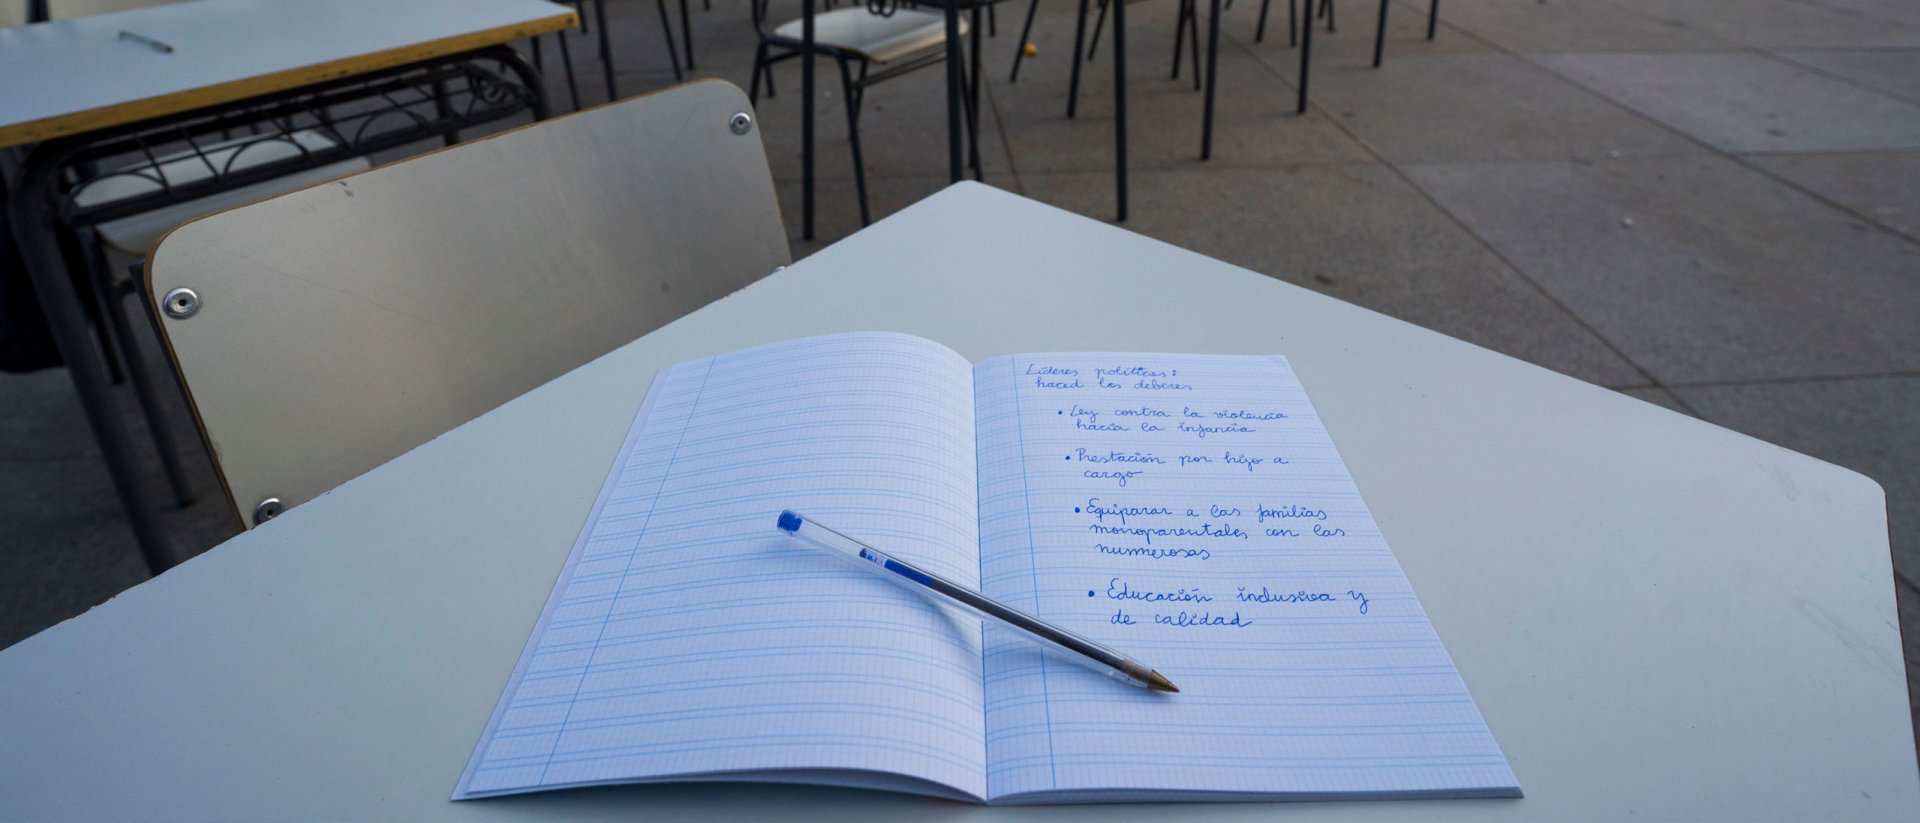 Líderes políticos:
haced los deberes
• Ley contra la violencia
hacia la infancia
• Prestación por hijo a
cargo
• Equiparar a las familias
monoparentales con las
nummerosas
• Educación inclusiva y
de calidad